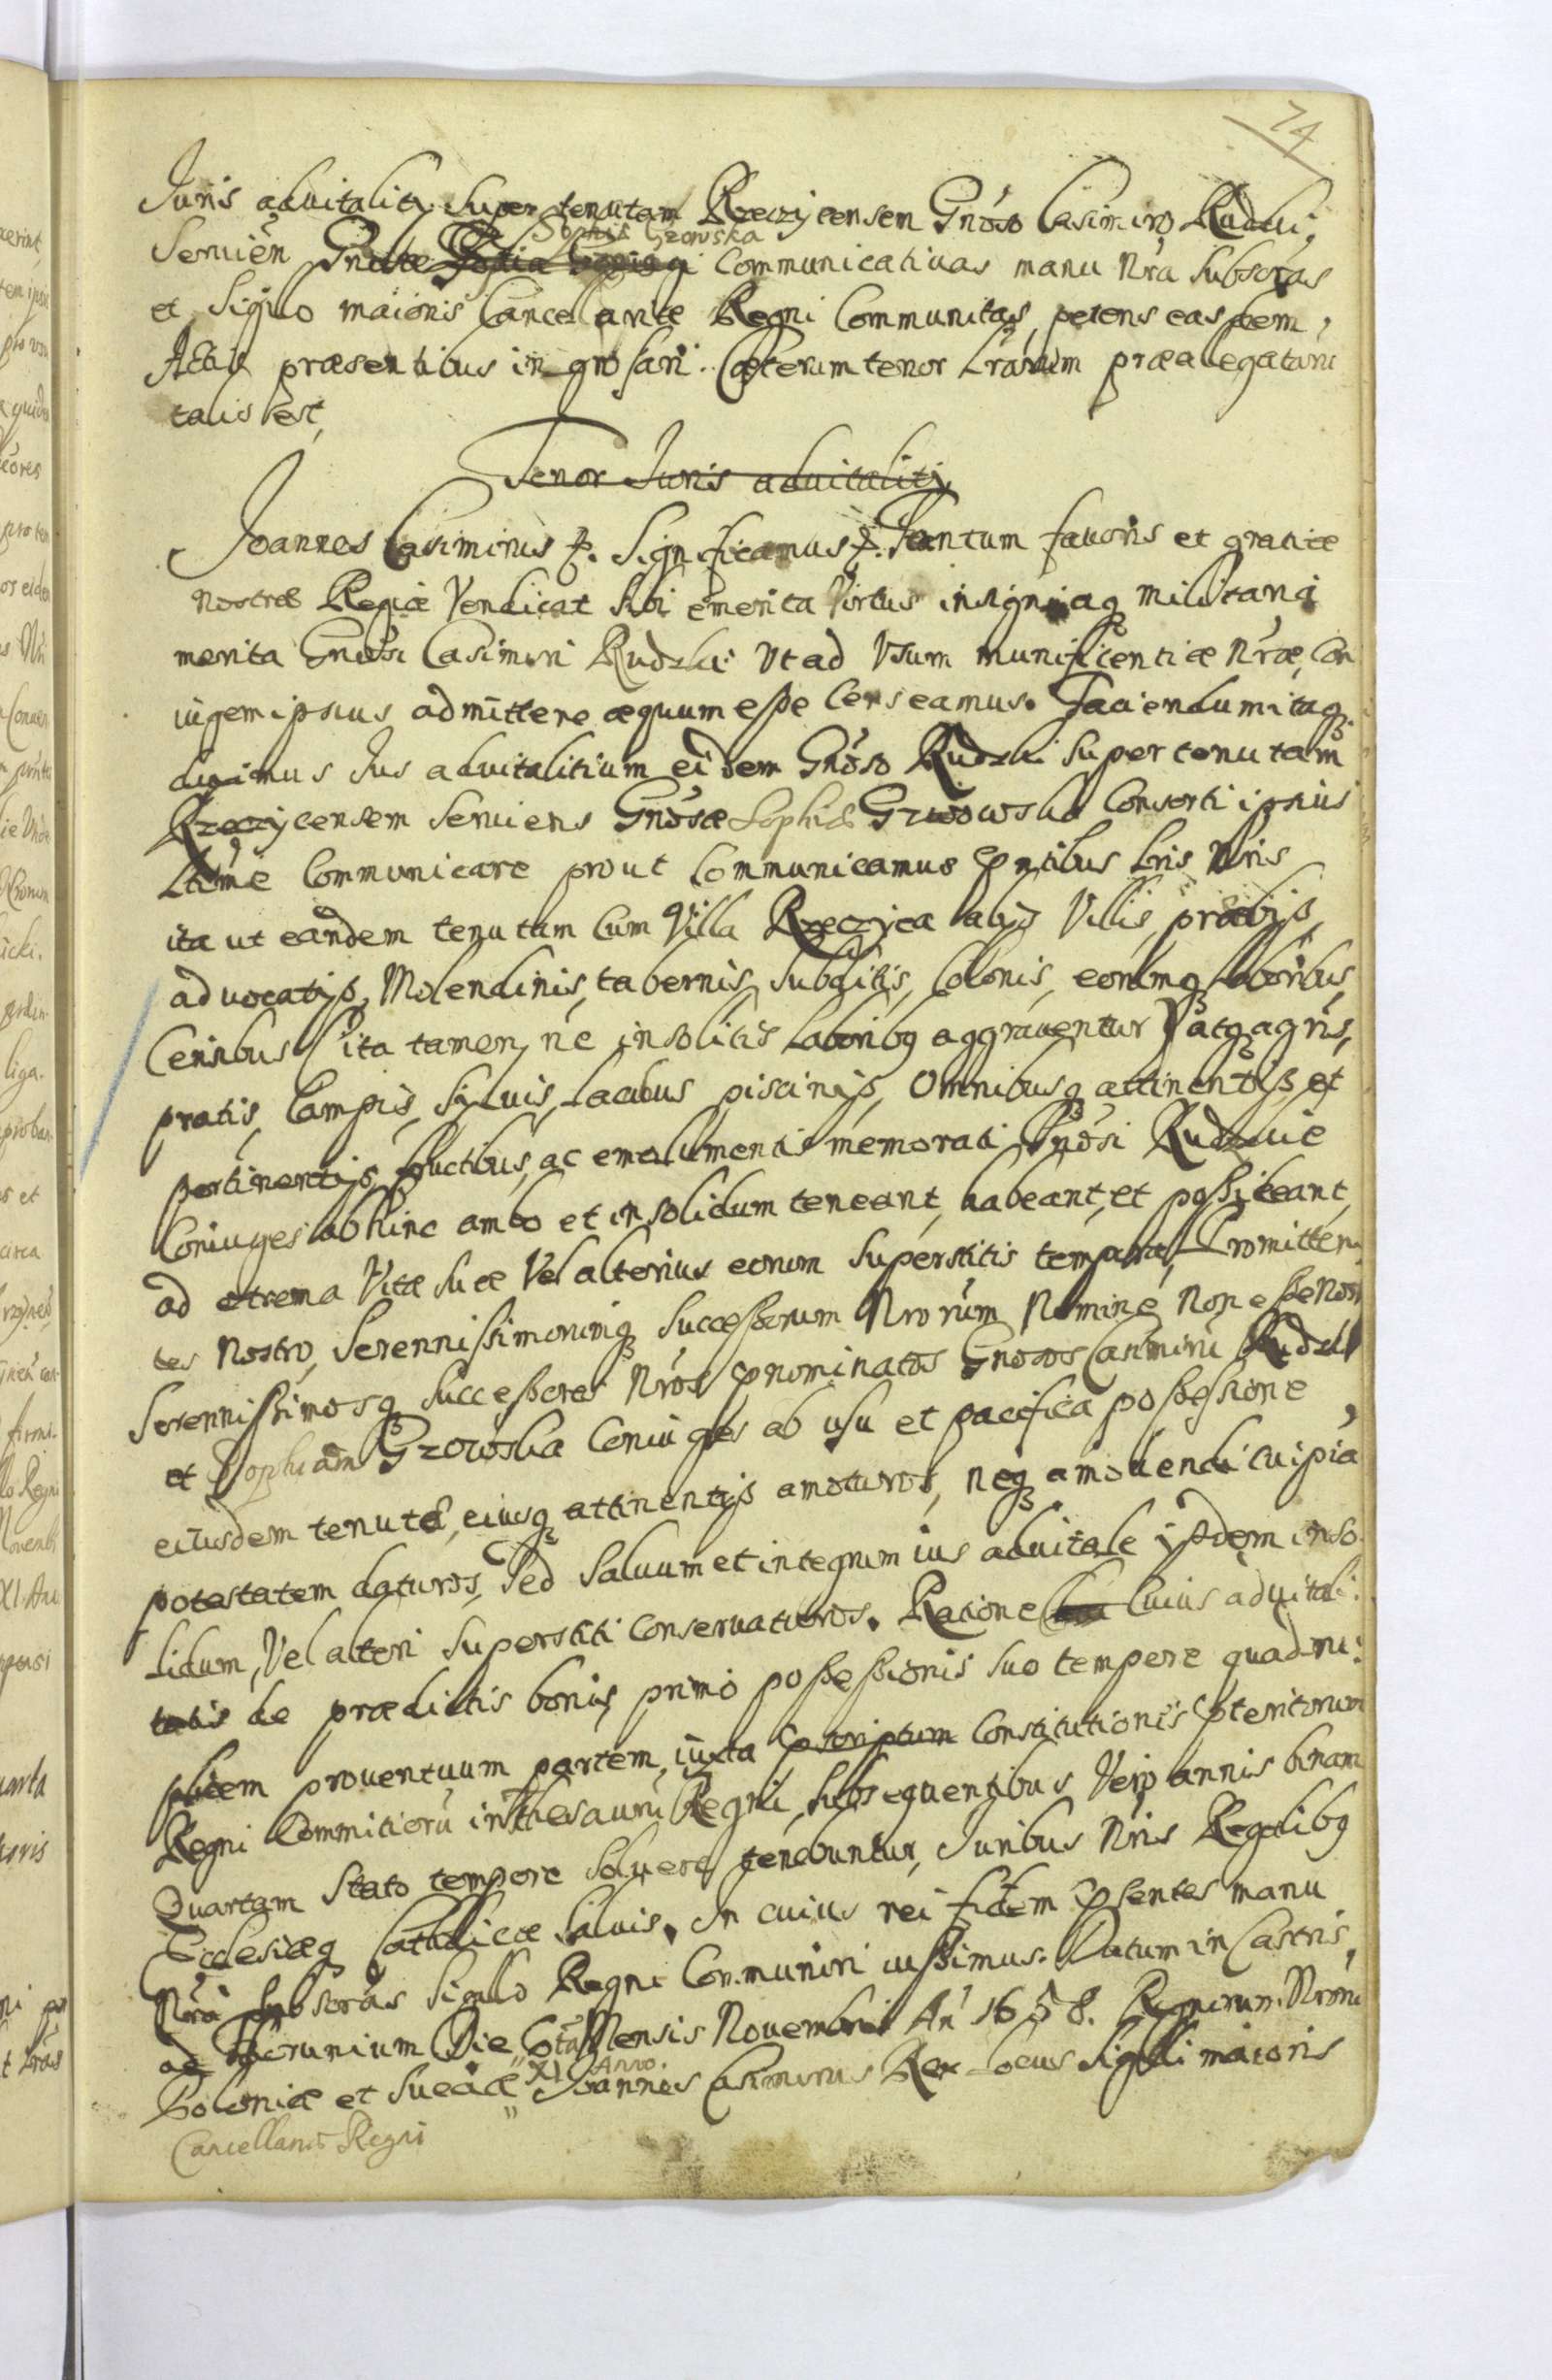 74
Juris aduitalitij super tenutam Rzeczycensem Gnoso Casimiro Rudzki,
Sophiæ Gzowska
Seruien Gnatæ Sophiæ Coniugi Communicatiuas manu Nra Subscras
et Sigillo maioris Cancellariæ Regni Communitas, petens eas pem.
Actis præsentibus ingrossari. Cæterum tenor Lrarum præallegataru
talis est,
Tenor Juris aduitalitij
Joannes Casimirus &. Significamus &. Tantum fauoris et gratiæ
Nostræ Regiæ Vendicat Sibi emerita Virtus insigniaq militaria
merita Gnosi Casimiri Rudzki Vt ad Vsum munificentiæ Nræ, Con
iugem ipsius admittere æquum esse Censeamus. Faciendum itaq
duximus Jus aduitalitium eidem Gnoso Rudzki super tenutam
Rzeczycensem Seruiens Gnosæ Sophiæ Gzowska Consorti ipsius
Ltime Communicare prout Communicamus pntibus Lris Nris
ita ut eandem tenutam Cum Villa Rzeczyca alijs Villis, prædijs,
aduocatijs, Molendinis, tabernis, Subditis, Colonis, eorumq laboribus,
Censibus (ita tamen ne insolitis laboribq aggrauentur) atq agris,
pratis, Campis, Syluis, Lacubus piscinis, Omnibusq attinentijs et
pertinentijs, fructibus, ac emolumentis memorati Gnosi Rudzkie
Coniuges abhinc ambo et insolidum teneant, habeant, et possideant,
ad extrema Vitæ suæ Vel alterius eorum Superstitis tempora, Promitten
tes Nostro, Serennissimorumq Successorum Nrorum Nomine Non esse Nos
Serennissimosq Successores Nros prominatos Gnosos Casimiru Rudzki
et Sophiam Gzowska Coniuges ab usu et pacifica possessione
eiusdem tenutæ, eiusq attinentijs amoturos, neq amouendi cuipia
potestatem daturos, Sed Saluum et integrum ius aduitale ipsdem inso
lidum, Vel alteri Superstiti Conseruaturos. Ratione Cuius aduitali
tatis de prædictis bonis, primo possessionis suo tempore quadru:
plicem prouentuum partem, iuxta pscriptum Constitutionis pteritorum
Regni Commitioru in Thesauru Regni, Subsequentibus Vero annis binam
Quartam Stato tempore Soluere tenebuntur, Juribus Nris Regalibq
Ecclesiæq Catholicæ Saluis. In cuius rei fidem psentes manu
Nra Subscras Sigillo Regni Communiri iussimus. Datum in Castris
ad Thorunium Die Mensis Nouembris An 1658. Regnorum Nroru
Poloniæ et Sueciæ XI Anno. Joannes Casimirus Rex Locus Sigilli maioris
Cancellariæ Regni